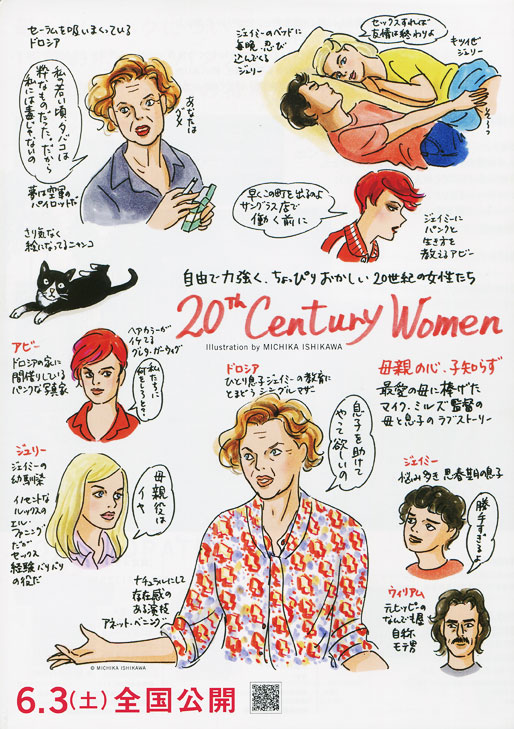 セーラムを吸いまくっている
ドロシア
私の若い頃、タバコは
粋なものだった。だから
私には毒じゃないの
あなたは
ダメ
夢は空軍の
パイロットだ
ジェイミーのベッドに
毎晩、忍び
込んでくる
ジュリー
セックスすれば
友情は終わりよ
キツイぜ
ジュリー
早くこの町を出るのよ
サングラス店で
働く前に
ジェイミーに
パンクと
生き方を
教えるアビー
さり気なく
絵になってるニャンコ
自由で力強く、ちょっぴりおかしい 20世紀の女性たち
20th Century Women
Illustration by MICHIKA ISHIKAWA
アビー
ドロシアの家に
間借りしている
パンクな写真家
ヘアカラーが
イケてる
グレタ・ガーウィグ
私たちに
何をしろと?
ドロシア
ひとり息子ジェイミーの教育に
とまどうシングルマザー
息子を助けて
やって欲しいの
母親の心、子知らず
最愛の母に捧げた
マイク・ミルズ監督の
母と息子のラブストーリー
ジュリー
ジェイミーの
幼馴染
イノセントな
ルックスの
エル・
ファニング
だが
セックス
経験バリバリ
の役だ
母親役は
イヤ
ジェイミー
悩み多き 思春期の息子
勝手すぎるよ
ナチュラルにして
存在感の
ある演技
アネット・ベニング
ウィリアム
元ヒッピーの
なんでも屋
自称
モテ男
© MICHIKA ISHIKAWA
6.3(土) 全国公開